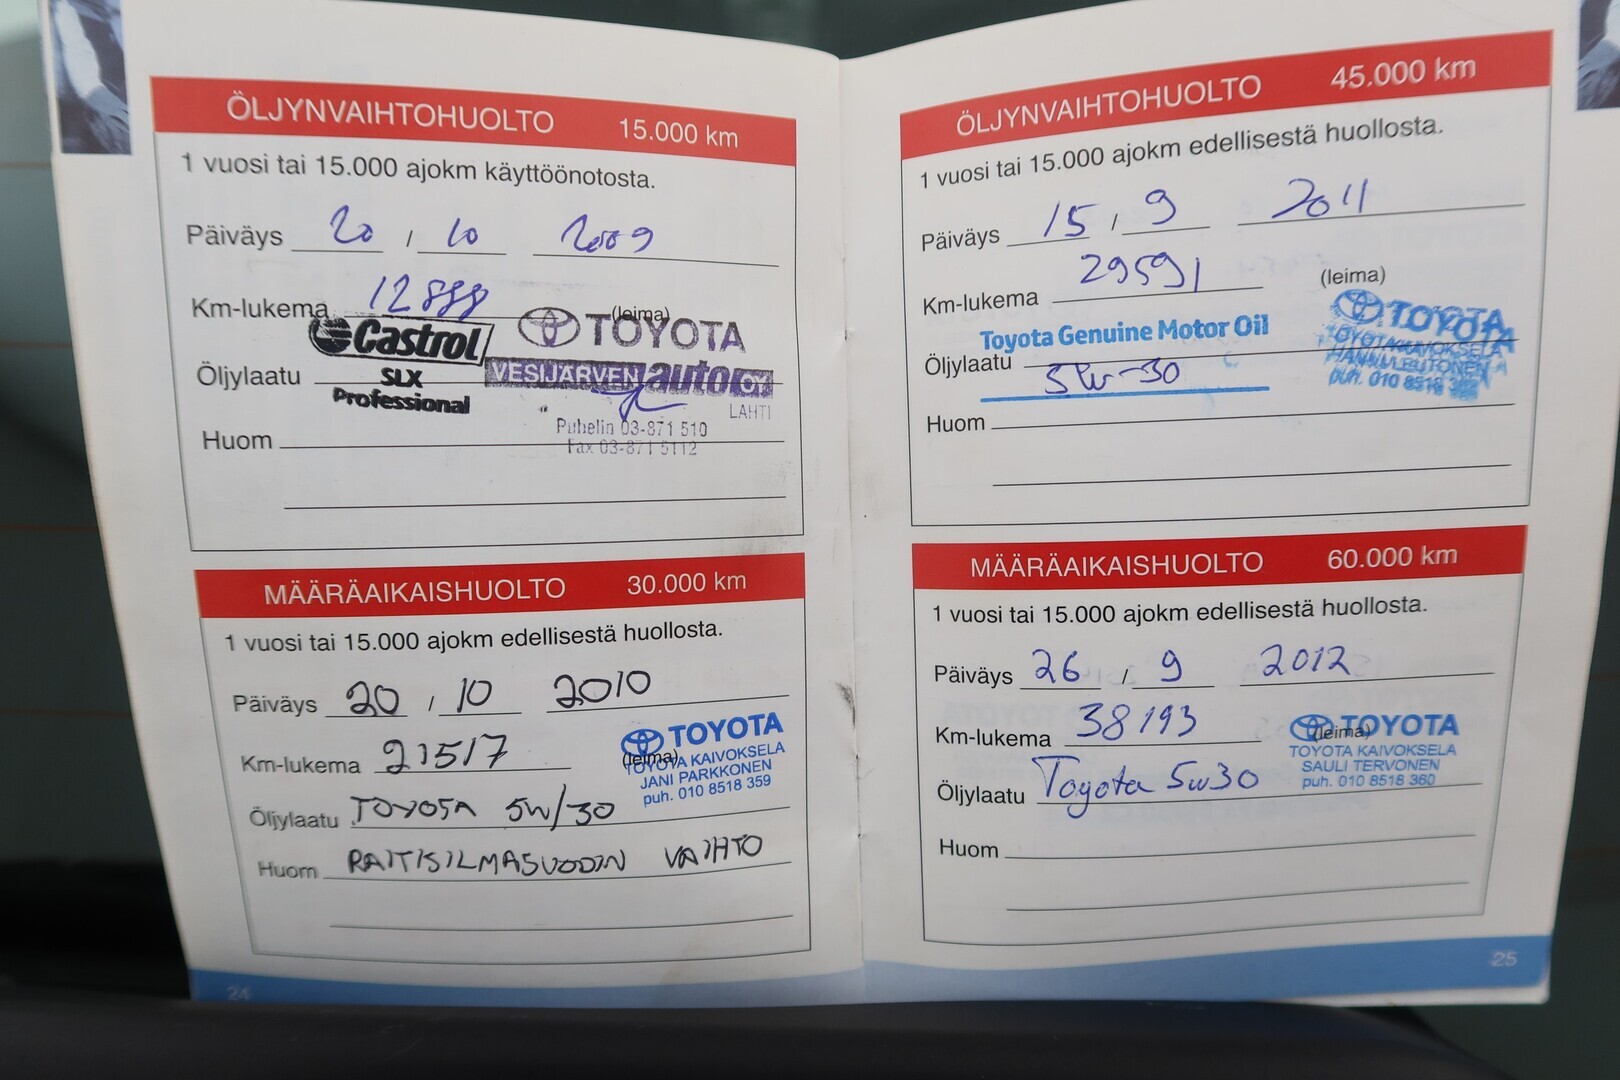 ÖLJYNVAIHTOHUOLTO 15.000 km
1 vuosi tai 15.000 ajokm käyttöönotosta.
Päiväys 20 / 10 2009
Km-lukema 12888
(leima)
Castrol
SLX
Professional
TOYOTA
VESIJÄRVEN auto OY
LAHTI
Puhelin 03-871 510
Fax 03-871 5112
Öljylaatu
Huom
MÄÄRÄAIKAISHUOLTO 30.000 km
1 vuosi tai 15.000 ajokm edellisestä huollosta.
Päiväys 20 / 10 2010
Km-lukema 21517
(leima)
TOYOTA
TOYOTA KAIVOKSELA
JANI PARKKONEN
puh. 010 8518 359
Öljylaatu TOYOTA 5W/30
Huom RAITISILMASUODIN VAIHTO
24
ÖLJYNVAIHTOHUOLTO 45.000 km
1 vuosi tai 15.000 ajokm edellisestä huollosta.
Päiväys 15 / 9 2011
Km-lukema 29591
(leima)
Toyota Genuine Motor Oil
Öljylaatu 5W-30
TOYOTA
TOYOTA KAIVOKSELA
puh. 010 8518
Huom
MÄÄRÄAIKAISHUOLTO 60.000 km
1 vuosi tai 15.000 ajokm edellisestä huollosta.
Päiväys 26 / 9 2012
Km-lukema 38193
(leima)
TOYOTA
TOYOTA KAIVOKSELA
SAULI TERVONEN
puh. 010 8518 360
Öljylaatu Toyota 5w30
Huom
25